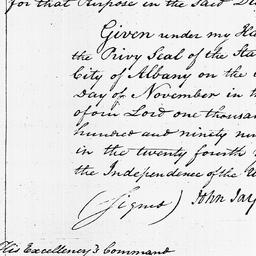 for that Purpose in the said D
Given under my Ha
the Privy Seal of the Sta
City of Albany on the
Day of November in th
of our Lord one thousan
hundred and ninety nin
in the twenty fourth
the Independence of the U
(Signed) John Jay
His Excellency's Command